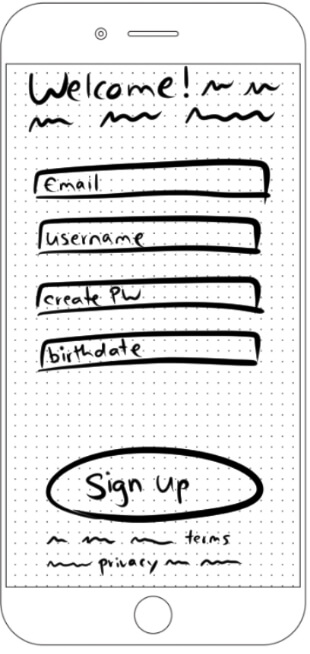 Welcome!
Email
username
create PW
birthdate
Sign Up
terms
privacy